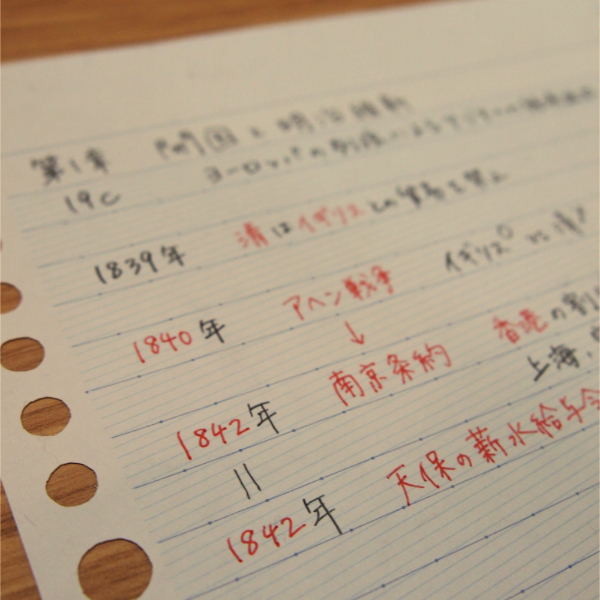 第1章 開国と明治維新
19c ヨーロッパの列強によるアジアへの
1839年 清はイギリスとの貿易を禁止
1840年 アヘン戦争 イギリス○ vs 清
↓
1842年 南京条約 香港の割
上海、
||
1842年 天保の薪水給与令